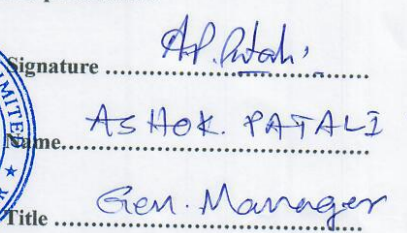 Signature ........ A.P. Patali
Name........ ASHOK. PATALI
Title ........ Gen. Manager
LIMITED